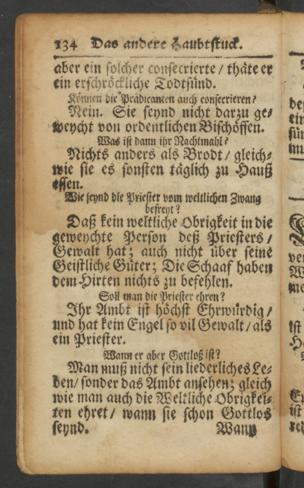 134 Das andere Haubtstuck.
aber ein solcher consecrierte / thäte er
ein erschröckliche Todtsünd.
Können die Prædicanten auch consecrieren?
Nein. Sie seynd nicht darzu ge-
weycht von ordentlichen Bischöffen.
Was ist dann ihr Nachtmahl?
Nichts anders als Brodt / gleich-
wie sie es sonsten täglich zu Hauß
essen.
Wie seynd die Priester vom weltlichen Zwang
befreyt?
Daß kein weltliche Obrigkeit in die
geweychte Person deß Priesters /
Gewalt hat; auch nicht über seine
Geistliche Güter; Die Schaaf haben
dem Hirten nichts zu befehlen.
Soll man die Priester ehren?
Ihr Ambt ist höchst Ehrwürdig /
und hat kein Engel so vil Gewalt / als
ein Priester.
Wann er aber Gottloß ist?
Man muß nicht sein liederliches Le-
ben / sonder das Ambt ansehen; gleich
wie man auch die Weltliche Obrigkei-
ten ehret / wann sie schon Gottlos
seynd. Wann